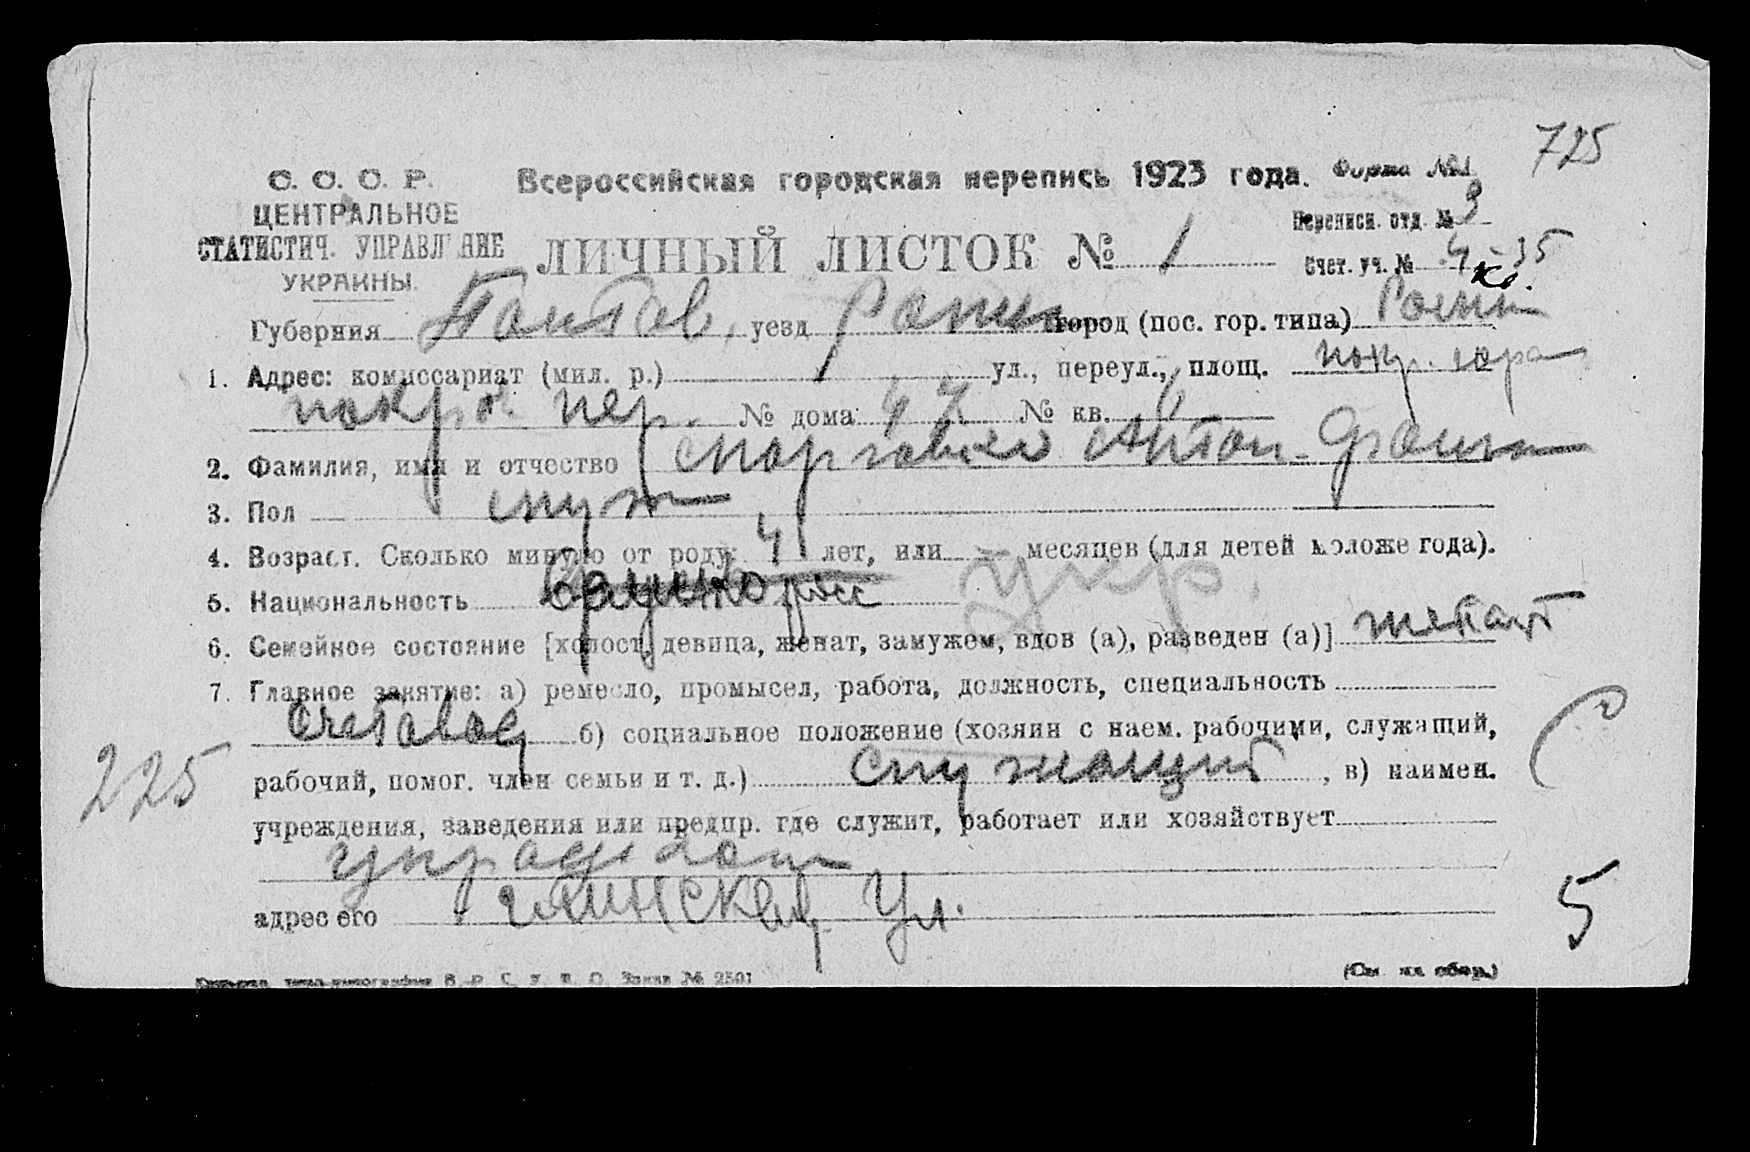 725
С. С. С. Р. Всероссийская городская перепись 1923 года. Форма №1
ЦЕНТРАЛЬНОЕ Переписн. отд. № 9
СТАТИСТИЧ. УПРАВЛЕНИЕ ЛИЧНЫЙ ЛИСТОК № 1 Счет. уч. № 4-35
УКРАИНЫ.
Губерния Полтав, уезд Ромны город (пос. гор. типа) Ромны
1. Адрес: комиссариат (мил. р.) ул., переул., площ. покр. гора
покров. пер. № дома 47 № кв.
2. Фамилия, имя и отчество Антон
3. Пол муж
4. Возраст. Сколько минуло от роду: лет, или — месяцев (для детей моложе года).
5. Национальность укр.
6. Семейное состояние [холост, девица, женат, замужем, вдов (а), разведен (а)] женат
7. Главное занятие: а) ремесло, промысел, работа, должность, специальность
счетовод б) социальное положение (хозяин с наем. рабочими, служащий,
225 рабочий, помог. член семьи и т. д.) служащий, в) наимен.
учреждения, заведения или предпр. где служит, работает или хозяйствует
адрес его ул.
5
(См. на обор.)